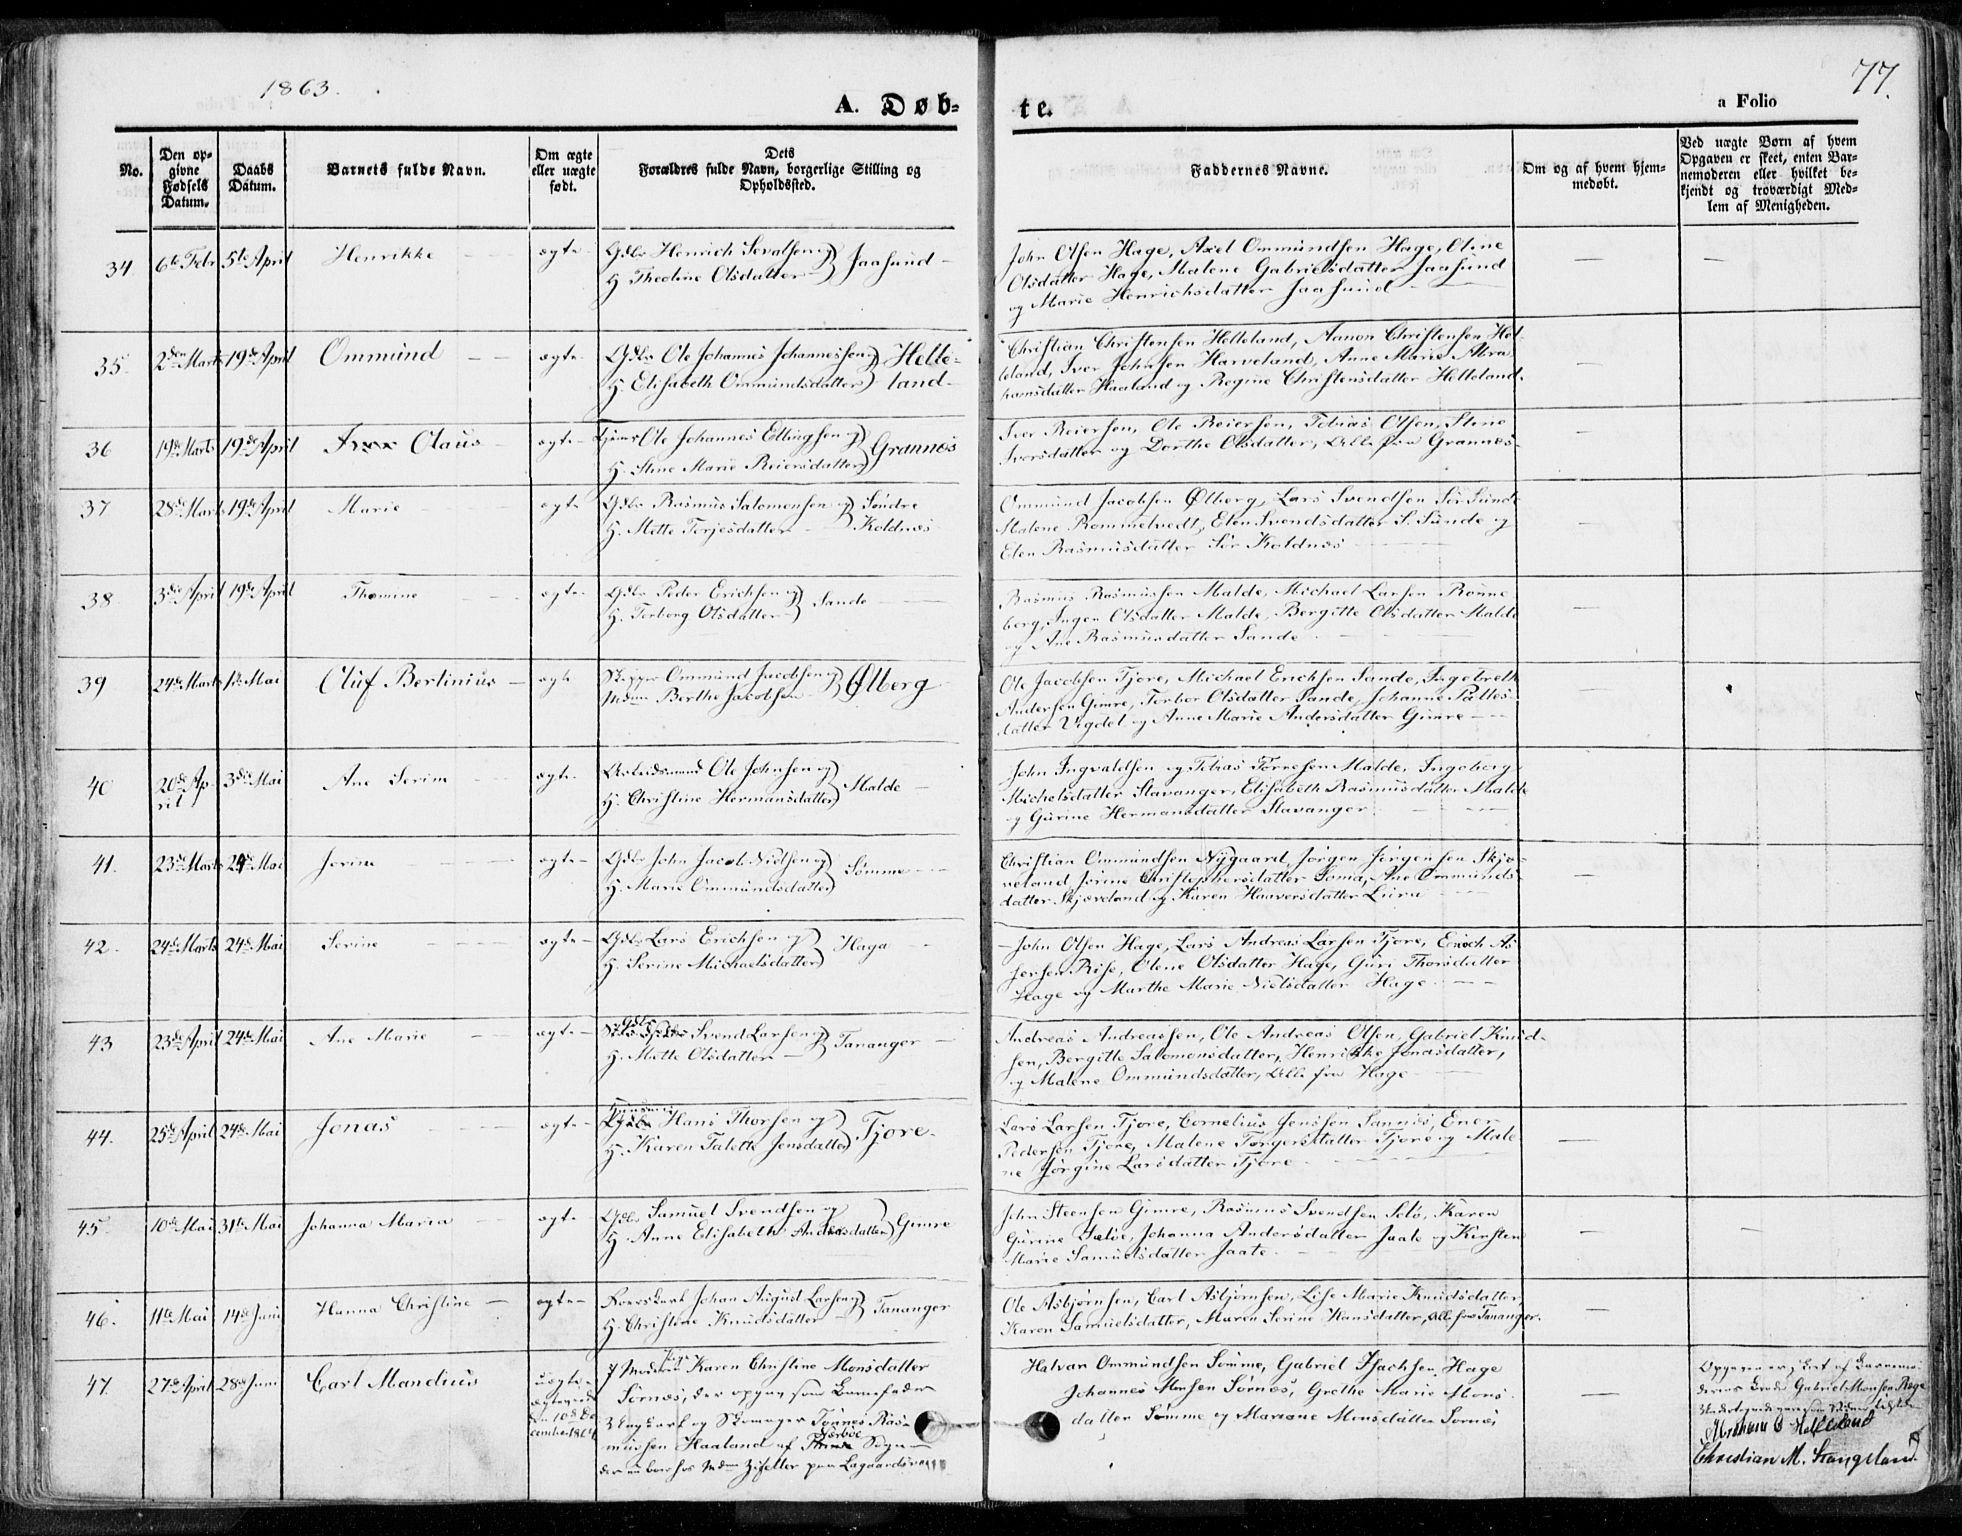 1863.
77.
A. Døb-
te.
a Folio
No.
Den op-
givne
Fødsels
Datum.
Daabs
Datum.
Barnets fulde Navn.
Om ægte
eller uægte
født.
Dets
Forældres fulde Navn, borgerlige Stilling og
Opholdssted.
Faddernes Navne.
Om og af hvem hjem-
medøbt.
Ved uægte Børn af hvem
Opgaven er skeet, enten Bar-
nemoderen eller hvilket be-
kjendt og troværdigt Med-
lem af Menigheden.
34 6te Febr 5te April Henrikke ægte Gdbr Henrich Sevalsen og
H. Theoline Olsdatter Jaasund
John Olsen Hage, Axel Ommundsen Hage, Oline
Olsdatter Hage, Malene Gabrielsdatter Jaasund
og Marie Henrichsdatter Jaasund
35. 2den Marts 19de April Ommund ægte Gdbr Ole Johannes Johannessen og Helle-
H. Elisabeth Ommundsdatter land
Christian Christensen Helleland, Aanon Christensen Hel-
leland, Iver Johnsen Harveland, Anne Marie Abra-
hamsdatter Haaland og Regine Christensdatter Helleland.
36 19de Marts 19de April Olaus ægte Ole Johannes Ellingsen og
H. Stine Marie Reiersdatter Grannes
Iver Reiersen, Ole Reiersen, Tobias Olsen, Stine
Iversdatter og Dorthe Olsdatter, Alle fra Grannes
37 28de Marts 19de April Marie ægte Gdbr Rasmus Salomonsen og Søndre
H. Mette Terjesdatter Koldnæs
Ommund Jacobsen Ølberg, Lars Svendsen Sør Sunde
Malene Rommetvedt, Elen Svendsdatter S. Sunde og
Elen Rasmusdatter Sør Koldnæs
38 3die April 19de April Thomine ægte Gdbr Peder Erichsen og
H. Torborg Olsdatter Sande
Rasmus Rasmussen Malde, Michael Larsen Rønne
berg, Inger Olsdatter Malde, Bergitte Olsdatter Malde
og Ane Rasmusdatter Sande
39 24de Marts 1ste Mai Oluf Bertinius ægte Ommund Jacobsen og
Mdm Berthe Jacobsen Ølberg
Ole Jacobsen Tjore, Michael Erichsen Sande, Ingebreth
Andersen Gimre, Torbor Olsdatter Sande, Johanne
datter Vigdel og Anne Marie Andersdatter Gimre
40 20de Ap-
ril 3die Mai Ane Serine ægte Arbeidsmand Ole Johnsen og
H. Christine Hermansdatter Malde
John Ingvaldsen og Tobias Tørresen Malde, Ingeborg
Michelsdatter Stavanger, Elisabeth Rasmusdatter Malde
og Gurine Hermansdatter Stavanger.
41. 23de Marts 24de Mai Jorine ægte Gdbr John Jacob Nielsen og
H. Marie Ommundsdatter Sømme
Christian Ommundsen Nygaard, Jørgen Jørgensen Skjæ-
veland, Jorine Christophersdatter Soma, Ane Ommunds-
datter Skjæveland og Karen Haaversdatter Lura
42. 24de Marts 24de Mai Serine ægte Gdbr Lars Erichsen og
H. Serine Michaelsdatter Haga
John Olsen Hage, Lars Andreas Larsen Tjore, Enoch As-
sersen Risa, Olene Olsdatter Hage, Guri Thorsdatter
Hage og Marthe Marie Nielsdatter Hage
43 23de April 24de Mai Ane Marie ægte Svend Larsen og
H. Mette Olsdatter Tananger
Andreas Andreassen, Ole Andreas Olsen, Gabriel Knud-
sen, Bergitte Salomonsdatter, Henrikke Jonasdatter,
og Malene Ommundsdatter, Alle fra Hage
44. 25de April 24de Mai Jonas ægte Hans Thorsen og
H. Karen Talette Jensdatter Tjore
Lars Larsen Tjore, Cornelius Jenssen Sannes, Ener
Pedersen Tjore, Malene Torgersdatter Tjore og Male
ne Jørgine Larsdatter Tjore
45. 10de Mai 31te Mai Johanna Maria ægte Gdbr Samuel Svendsen og
H. Anne Elisabeth Andreasdatter Gimre
John Steensen Gimre, Rasmus Svendsen Sele, Karen
Gurine Jaatte, Johanna Andersdatter Jaate og Kirsten
Marie Samuelsdatter Jaate
46. 11te Mai 14de Juni Hanna Christine ægte Johan August Larsen og
H. Christine Knudsdatter Tananger
Ole Asbjørnsen, Carl Asbjørnsen, Lise Marie Knudsdatter
Karen Samuelsdatter, Maren Serine Hansdatter, alle fra Tananger.
47. 27de April 28de Juni Carl Mandius uægte
den 10de De
cember 1864
Karen Christine Monsdatter
Sørnes, der opgav som Barnefader
Ungkarl og Skomager Tønnes Ras-
mussen Haaland af Sogn
Halvar Ommundsen Sømme, Gabriel Isachsen Hage
Johannes Monsen Sørnes, Grethe Marie Mons-
datter Sømme og Mariane Monsdatter Sørnes
Opgaven er gjort af Barnemo-
derens Broder Gabriel Monsen Rege
Abraham C Helleland
Christian M. Stangeland